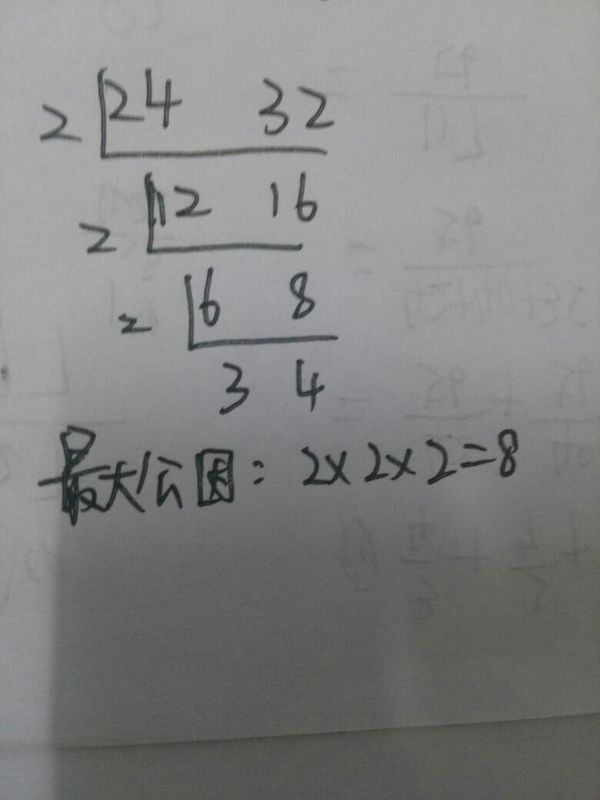 2 24 32
2 12 16
2 6 8
3 4
最大公因：2×2×2=8